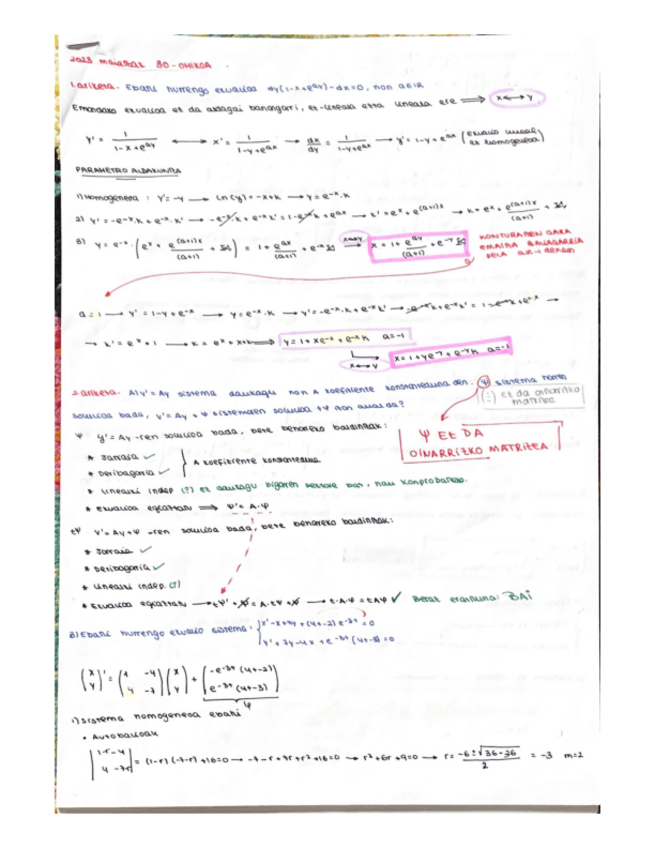 2023 maiatzak 30 - OHIKOA.
1. ariketa. Ebatzi hurrengo ekuazioa dy(1-x+e^{ay})-dx=0, non a∈ℝ
Emandako ekuazioa ez da aldagai banangarri, ez-lineala ezta lineala ere ⟹ x⟷y
y' = 1/(1-x+e^{ay}) ⟷ x' = 1/(1-y+e^{ax}) → dx/dy = 1/(1-y+e^{ax}) → y' = 1-y+e^{ax} (ekuazio lineal ez homogeneoa)
PARAMETRO ALDAKUNTZA
1) Homogeneoa: y'=-y → ln(y)=-x+k → y=e^{-x}·k
2) y'=-e^{-x}·k+e^{-x}·k' → -e^{-x}k+e^{-x}k'=1-e^{-x}k+e^{ax} → k'=e^x+e^{(a+1)x} → k=e^x+e^{(a+1)x}/(a+1)+k
3) y=e^{-x}·(e^x+e^{(a+1)x}/(a+1)+k) = 1+e^{ax}/(a+1)+e^{-x}k x⟷y → x=1+e^{ay}/(a+1)+e^{-y}k
KONTURATZEN GARA
EMAITZA BALIAGARRIA
DELA a≠-1 DENEAN
a=-1 → y'=1-y+e^{-x} → y=e^{-x}·k → y'=-e^{-x}·k+e^{-x}k' → -e^{-x}k+e^{-x}k'=1-e^{-x}k+e^{-x} →
→ k'=e^x+1 → k=e^x+x+k ⟹ y=1+xe^{-x}+e^{-x}k a=-1
x⟷y → x=1+ye^{-y}+e^{-y}k a=-1
2. ariketa. A) y'=Ay sistema daukagu non A koefiziente konstanteduna den. ψ sistema horren
soluzioa bada, y'=Ay+ψ sistemaren soluzioa tψ non ahal da?
(:) ez da oinarrizko
matrizea
ψ y'=Ay-ren soluzioa bada, bete beharreko baldintzak:
ψ EZ DA
OINARRIZKO MATRIZEA
* Jarraia ✓
* Deribagarria ✓ } A koefiziente konstanteduna.
* Linealki indep (?) ez daukagu bigarren bektore bat, hau konprobatzeko.
* Ekuazioa egiaztatu ⟹ ψ'=A·ψ
tψ y'=Ay+ψ-ren soluzioa bada, bete beharreko baldintzak:
* Jarraia ✓
* Deribagarria ✓
* Linealki indep. (?)
* Ekuazioa egiaztatu → tψ'+ψ=A·tψ+ψ → t·A·ψ=tAψ ✓ Beraz erantzuna: BAI
B) Ebatzi hurrengo ekuazio sistema: { x'-x+4y+(4t-2)e^{-3t}=0
y'+7y-4x+e^{-3t}(4t-3)=0
(x y)' = (1 -4 4 -7)(x y) + (-e^{-3t}(4t-2) e^{-3t}(4t-3))
ψ
1) Sistema homogeneoa ebatzi
• Autobalioak
|1-r -4 4 -7-r| = (1-r)(-7-r)+16=0 → -7-r+7r+r²+16=0 → r²+6r+9=0 → r=(-6±√(36-36))/2 = -3 m=2